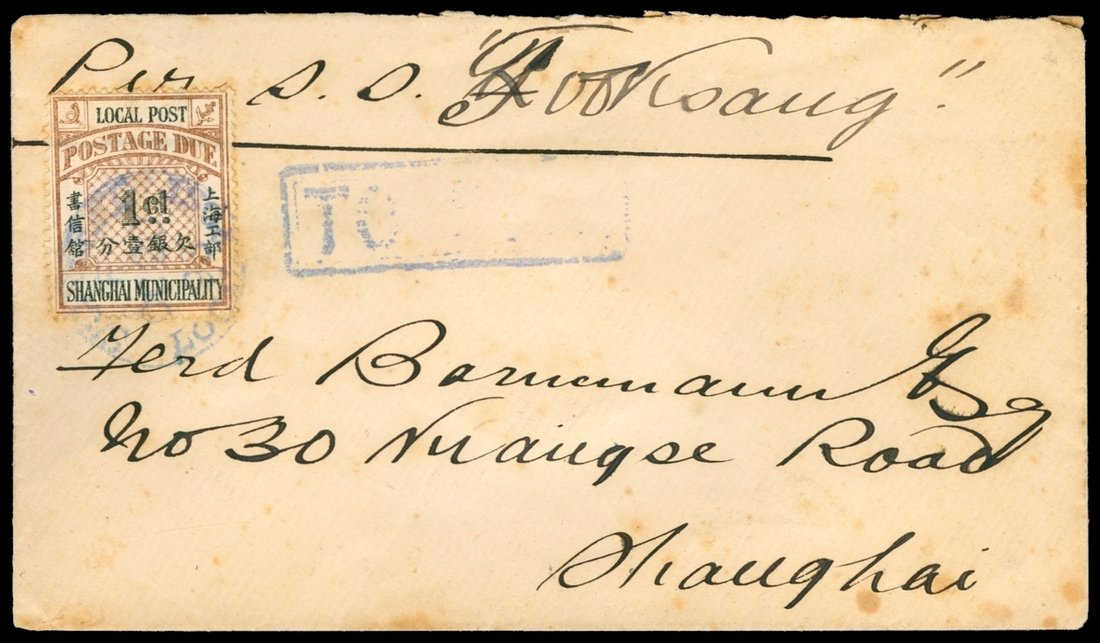 Per S.S. "Foo Ksang".
LOCAL POST
POSTAGE DUE
書信館
1 ct.
上海工部
欠銀壹分
SHANGHAI MUNICIPALITY
TO
LO
Ferd Bornemann Esq
No 30 Kiangse Road
Shanghai